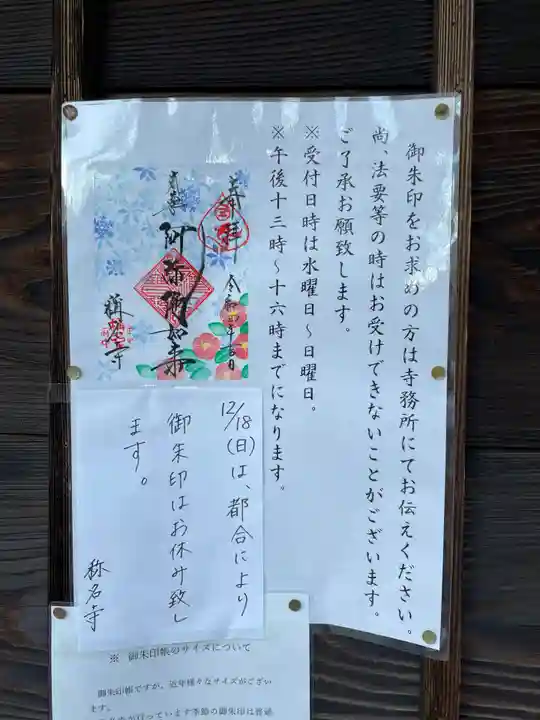 御朱印をお求めの方は寺務所にてお伝えください。
尚、法要等の時はお受けできないことがございます。
ご了承お願致します。
※受付日時は水曜日～日曜日。
※午後十三時～十六時までになります。
奉拝
阿弥陀如来
称名寺
12/18(日)は、都合により
御朱印はお休み致し
ます。
称名寺
※ 御朱印帳のサイズについて
御朱印帳ですが、近年様々なサイズがござい
ます。